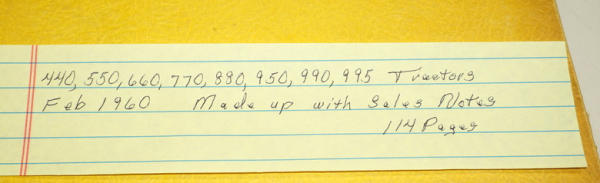 440, 550, 660, 770, 880, 950, 990, 995 Tractors
Feb 1960 Made up with Sales Notes
114 Pages